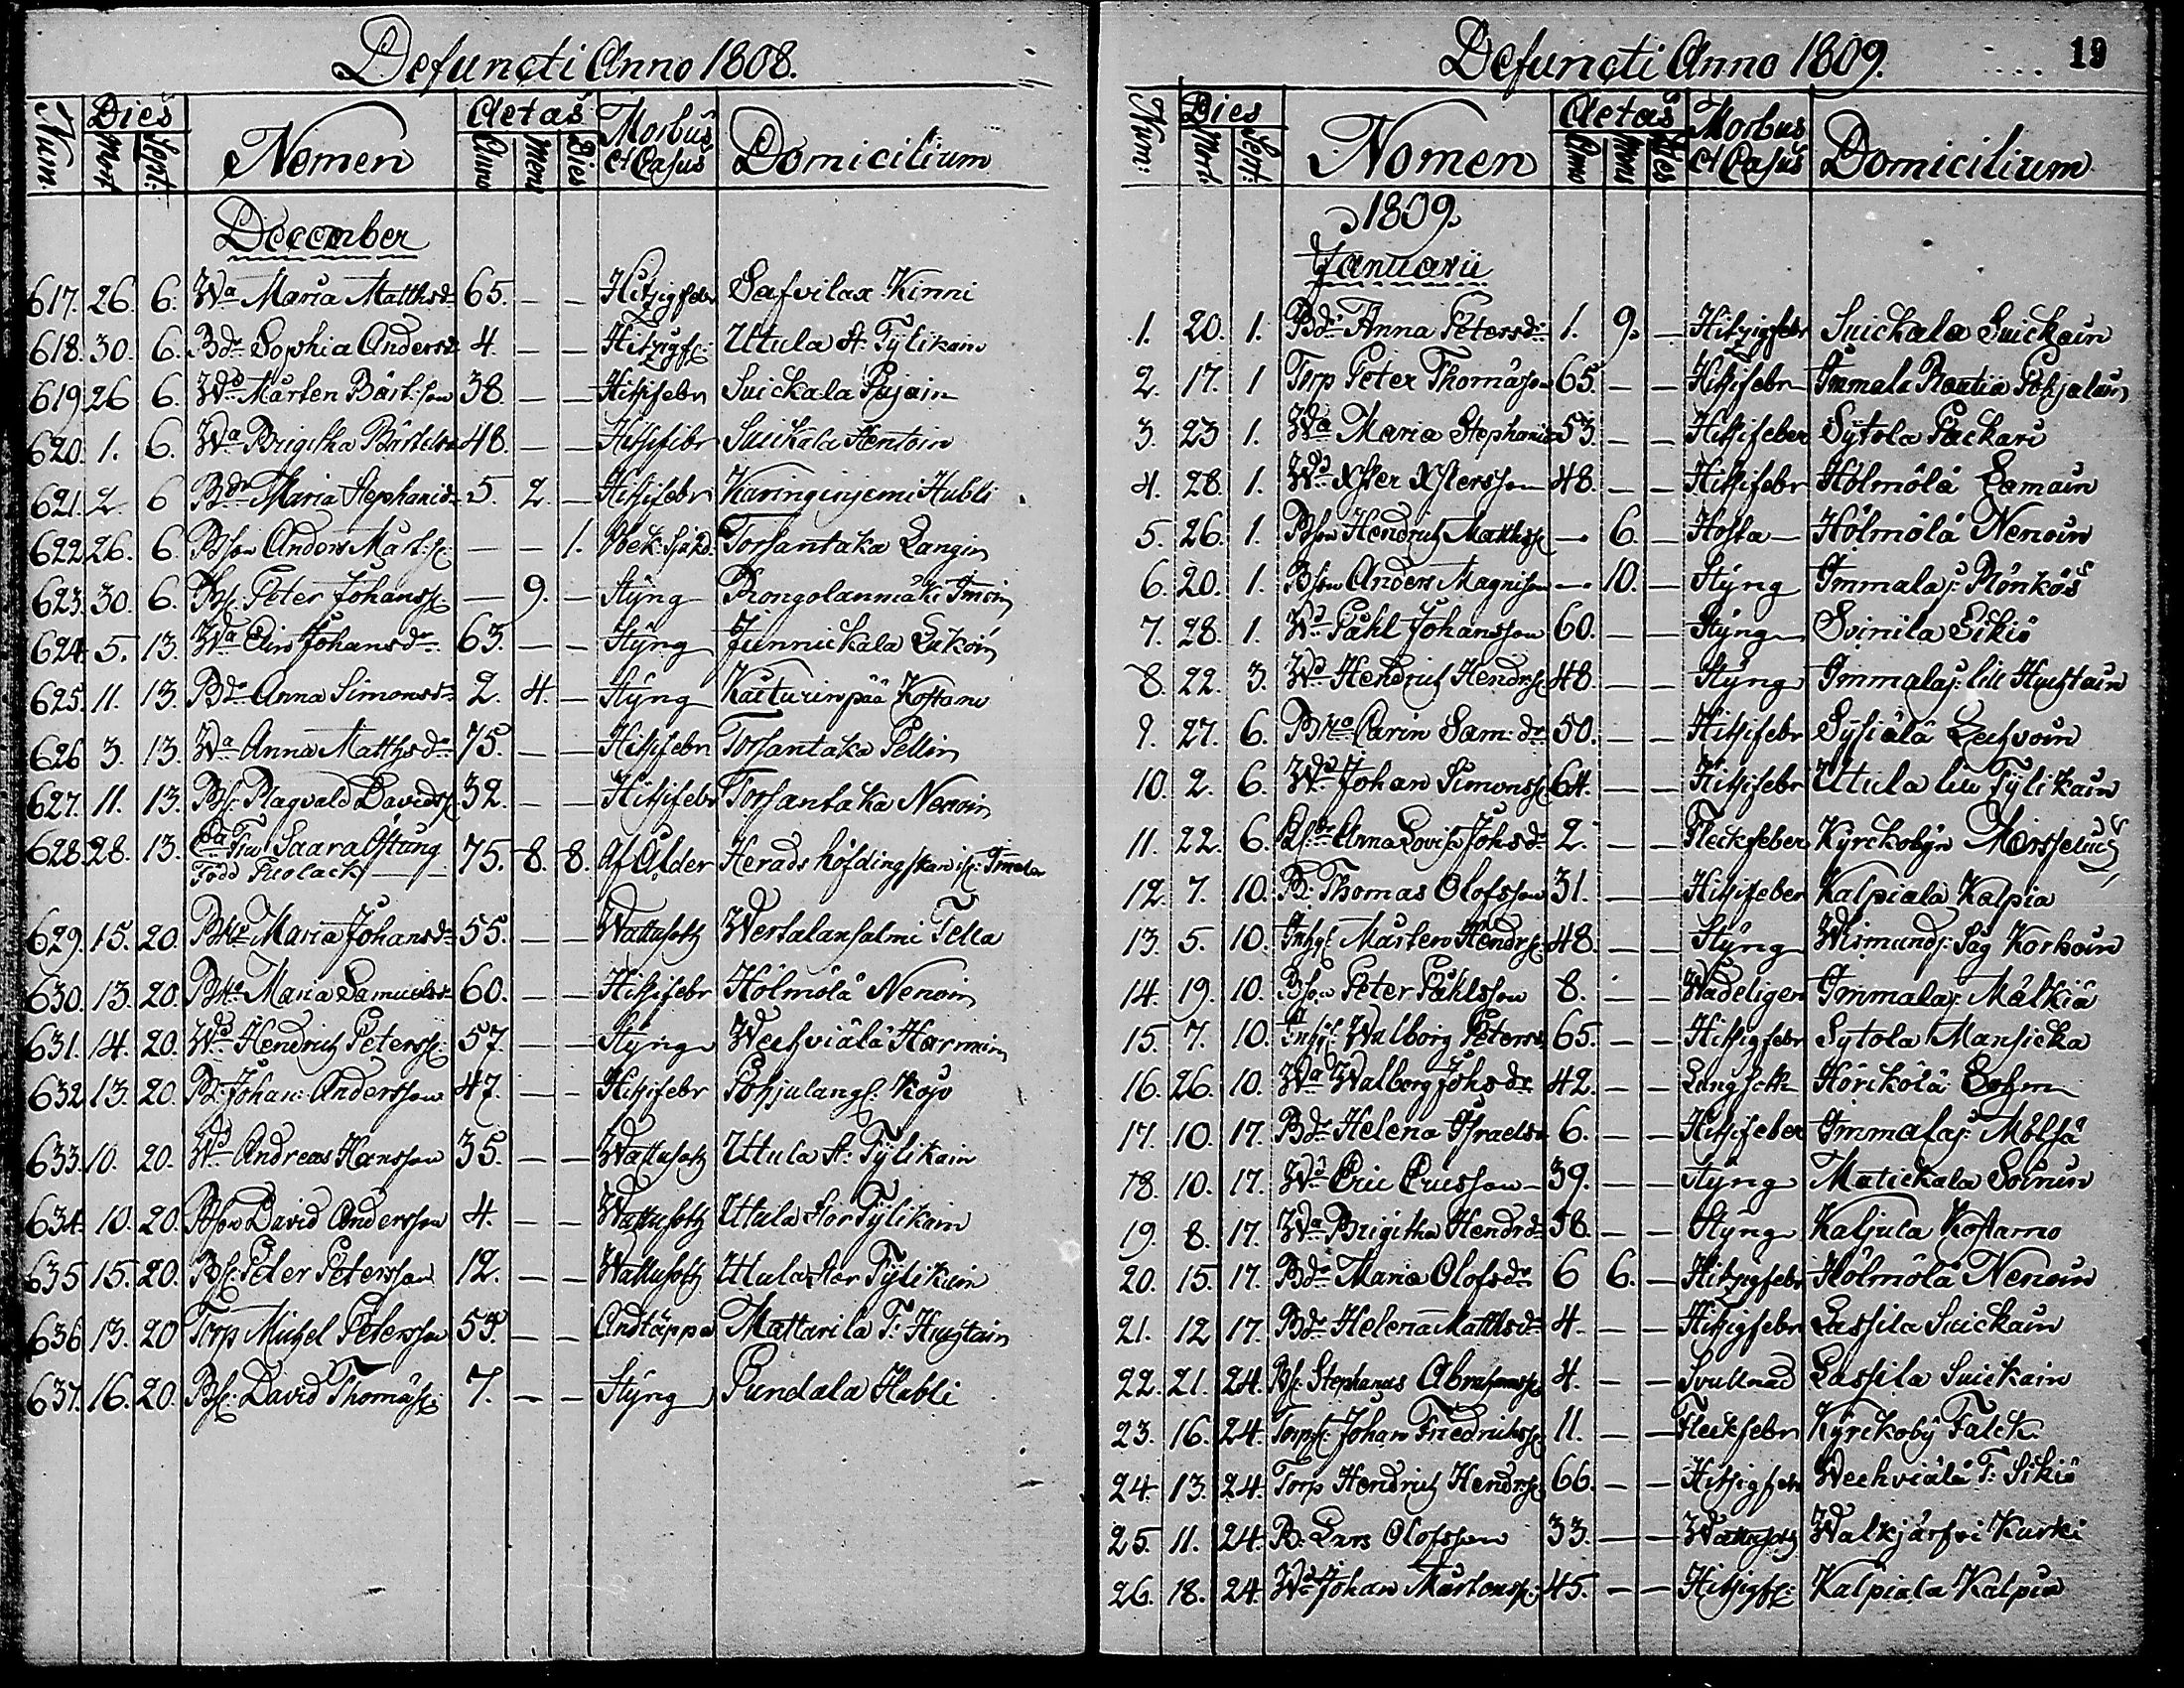 Defuncti Anno 1808.
Num. Dies Mort Sept: Nomen Aetas Anno Mens Dies Morbus et Casus Domicilium
December
617. 26 6. Wa Maria Matthsdr 65. — — Hitzigfebr Safvilax Kinni
618. 30. 6. Bdr Sophia Andersdr 4. — — Hitzigf: Uttula St. Tylikain
619. 26 6. Wd Mårten Bärt:son 38. — — Hitsifebr Suickala Pujain
620. 1. 6. Wa Brigitha Bärtelsdr 48. — — Hitsifebr Suickala Hentoin
621. 2. 6 Bdr Maria Stephanidr 5. 2. — Hitsifebr Karinginjemi Hubli
622. 26. 6. Bson Anders Mårt: — — 1. Obek: Sjukd. Torsantaka Langin
623. 30. 6. Bs: Peter Johanss: — 9. — Styng Rongolanmäki
624. 5. 13. Wa Johansdr 63. — — Styng Junnickala Lukoin
625. 11. 13. Bdr Anna Simonsdr 2. 4. — Styng Kaiturinpää Kostamo
626 3. 13. Wa Anna Matthsdr 75. — — Hitsifebr Torsantaka Pellin
627. 11. 13. Bs: Ragvald Davids: 32. — — Hitsifebr Torsantaka Nenoin
628. 28. 13. Fru Saara 75. 8. 8. Af Ålder Herads höfdingskan
Född
629. 15. 20. Maria Johansdr 55. — — Wattusoth Wertalansalmi Tella
630. 13. 20. Maria Samuelsdr 60. — — Hitsifebr Hölmölä Nenoin
631. 14. 20. Wd Hendrich Peterss: 57. — — Styng Wechviälä Harmoin
632. 13. 20. B. Johan: Andersson 47. — — Hitsifebr Pohjalangs: Kojo
633. 10. 20. Wd Andreas Hansson 35. — — Wattusoth Uttula St: Tylikain
634. 10. 20. Bson David Andersson 4. — — Wattusoth Uttula Stor Tylikain
635 15. 20. Bs: Peter Petersson 12. — — Wattusoth Uttula Stor Tylikain
636 13. 20 Torp Michel Petersson 53. — — Andtäppa Mattarila T: Hugtain
637. 16. 20. Bs: David Thomäs: 7. — — Styng Pundala Hubli
Defuncti Anno 1809.
19
Num: Dies Mort. Sept: Nomen Aetas Anno Mens Dies Morbus et Casus Domicilium
1809
Januarii
1. 20. 1. Bdr Anna Petersdr 1. 9. — Hitzigfebr Suickala Suickain
2. 17. 1 Torp Peter Thomäson 65. — — Hitsifebr Immala Rautia Pohjalain
3. 23 1. Wa Maria Stephanidr 53. — — Hitsifeber Sytola Packari
4. 28. 1. Wd Xster Xstersson 48. — — Hitsifebr Hölmölä Lamain
5. 26. 1. Bson Hendrich Matths: — 6. — Hosta Hölmölä Nenoin
6. 20. 1. Bson Anders Magnison — 10. — Styng Immalaj: Rönkös
7. 28. 1. Wd Påhl Johansson 60. — — Styng Svinila Sikiö
8. 22. 3. Wd Hendrich Hendrs: 48. — — Styng Immalaj: lill Hugtain
9. 27. 6. Carin Sam:dr 50. — — Hitsifebr Sysiälä Lechvoin
10. 2. 6. Wd Johan Simonss: 64. — — Hitsifebr Uttula lill Tylikain
11. 22. 6. Anna Lovisa Johsdr 2. — — Fleckfeber Kyrckobyn
12. 7. 10. B: Thomas Olofsson 31. — — Hitsifeber Kalpiala Kalpia
13. 5. 10. Inhs: Mårten Hendrs: 48. — — Styng Wismundj: Såg Korkoin
14. 19. 10. Bson Peter Påhlsson 8. — — Wådeligen Immalaj: Mälkiä
15. 7. 10. Walborg Petersdr 65. — — Hitsigfebr Sytola Mansicka
16. 26. 10. Wa Walborg Johsdr 42. — — Lungsoth Hörickölä Sohm
17. 10. 17. Bdr Helena Israelsdr 6. — — Hitsifeber Immalaj: Mölsä
18. 10. 17. Wd Eric Ericsson 39. — — Styng Matickala Soinin
19. 8. 17. Wa Brigitha Hendrdr 58. — — Styng Kaljula Kostamo
20. 15. 17. Bdr Maria Olofsdr 6 6. — Hitzigfebr Hölmölä Nenoin
21. 12 17. Bdr Helena Matthsdr 4. — — Hitsigfebr Lassila Suickain
22. 21. 24. Bs: Stephanus Abrahams: 4. — — Svullnad Lassila Suickain
23. 16. 24. Torps: Johan Friedrichss: 11. — — Fleckfebr Kyrckoby Falck
24. 13. 24. Torp Hendrich Hendrs: 66. — — Hitsigfebr Wechviälä T: Sikiö
25. 11. 24. B. Lars Olofsson 33. — — Wattusoth Walkjärfvi Kurki
26. 18. 24. Wd Johan Mårtens: 45. — — Hitsigf: Kalpiala Kalpia